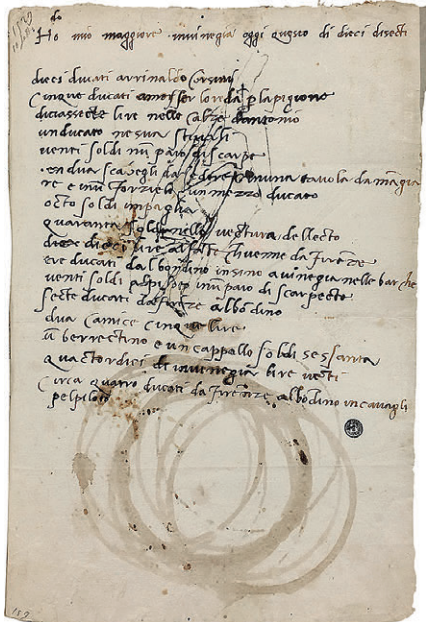 do
Ho mio maggiore invinegia oggi questo di dieci disecti
dieci ducati arrinaldo Corsini
Cinque ducati amesser loredā plapigione
diciassecte lire nelle Calze dantonio
un ducato ne sua stivali
venti soldi in un paio discarpe
en dua scabegli da sedire e inuna tavola da mangia
re e inu forzieretto un mezzo ducato
octo soldi in paglia
quaranta soldi nella vectura dellecto
dieci lire alfante che venne da firenze
tre ducati dalbondino insino avinegia nelle barche
venti soldi a piloto in un paio di scarpecte
secte ducati da firenze albōdino
dua Camice Cinque lire
ū berrectino e un cappello soldi sessanta
quactordici di in vinegia lire venti
Circa quatro ducati da firenze albodino in cavagli
pelpiloto